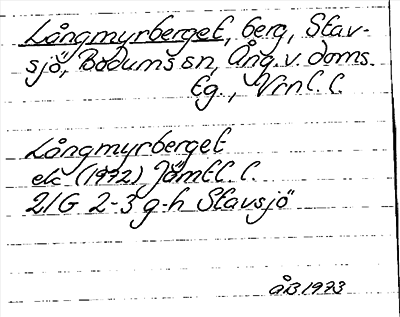 Långmyrberget, berg, Stav-
sjö, Bodums sn, Ång. v. doms.
tg., Vrnl. l.
Långmyrberget
ek (1972) Jämtl. l.
21G 2-3 g-h Stavsjö
åB 1973